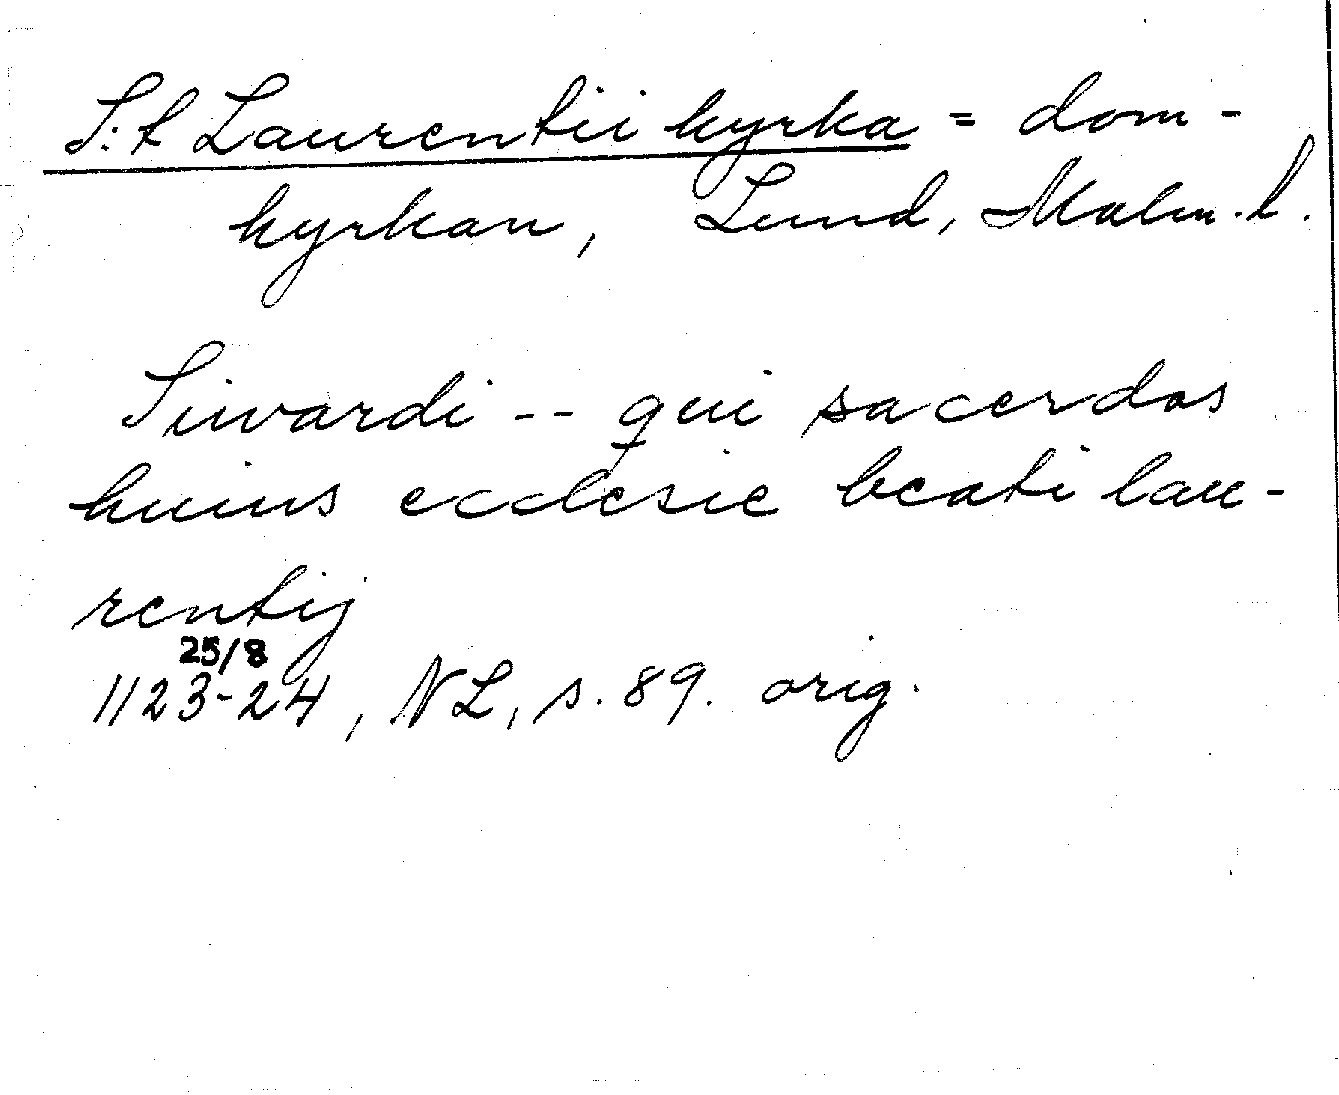 S:t Laurentii kyrka = dom-
kyrkan, Lund, Malm. l.
Siwardi -- qui sacerdos
huius ecclesie beati lau-
rentij
25/8
1123-24, NL, s. 89. orig.